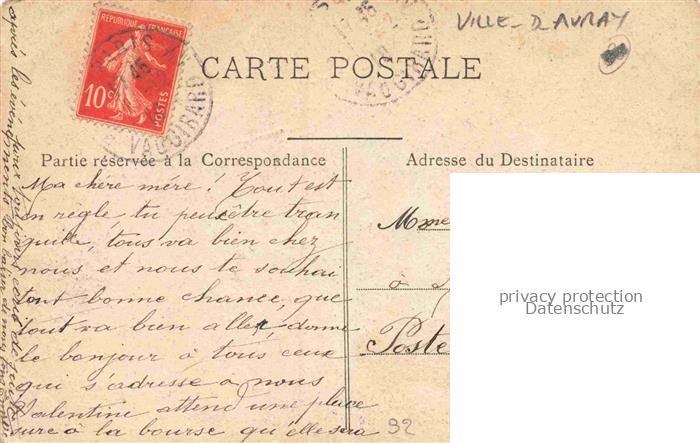 VILLE-D'AVRAY
RÉPUBLIQUE FRANÇAISE
10c
POSTES
PARIS
45
VAUGIRARD
VAUGIRARD
CARTE POSTALE
Partie réservée à la Correspondance
Adresse du Destinataire
Ma chère mére! Tout est
en règle tu peus être tran
quille, tous va bien chez
nous et nous te souhai
tont bonne chance, que
tout va bien aller donne
le bonjour à tous ceux
qui s'adresse a nous
Valentine attend une place
sure à la bourse qu'elle sera
après les événements
Mme
à
Poste
privacy protection
Datenschutz
92